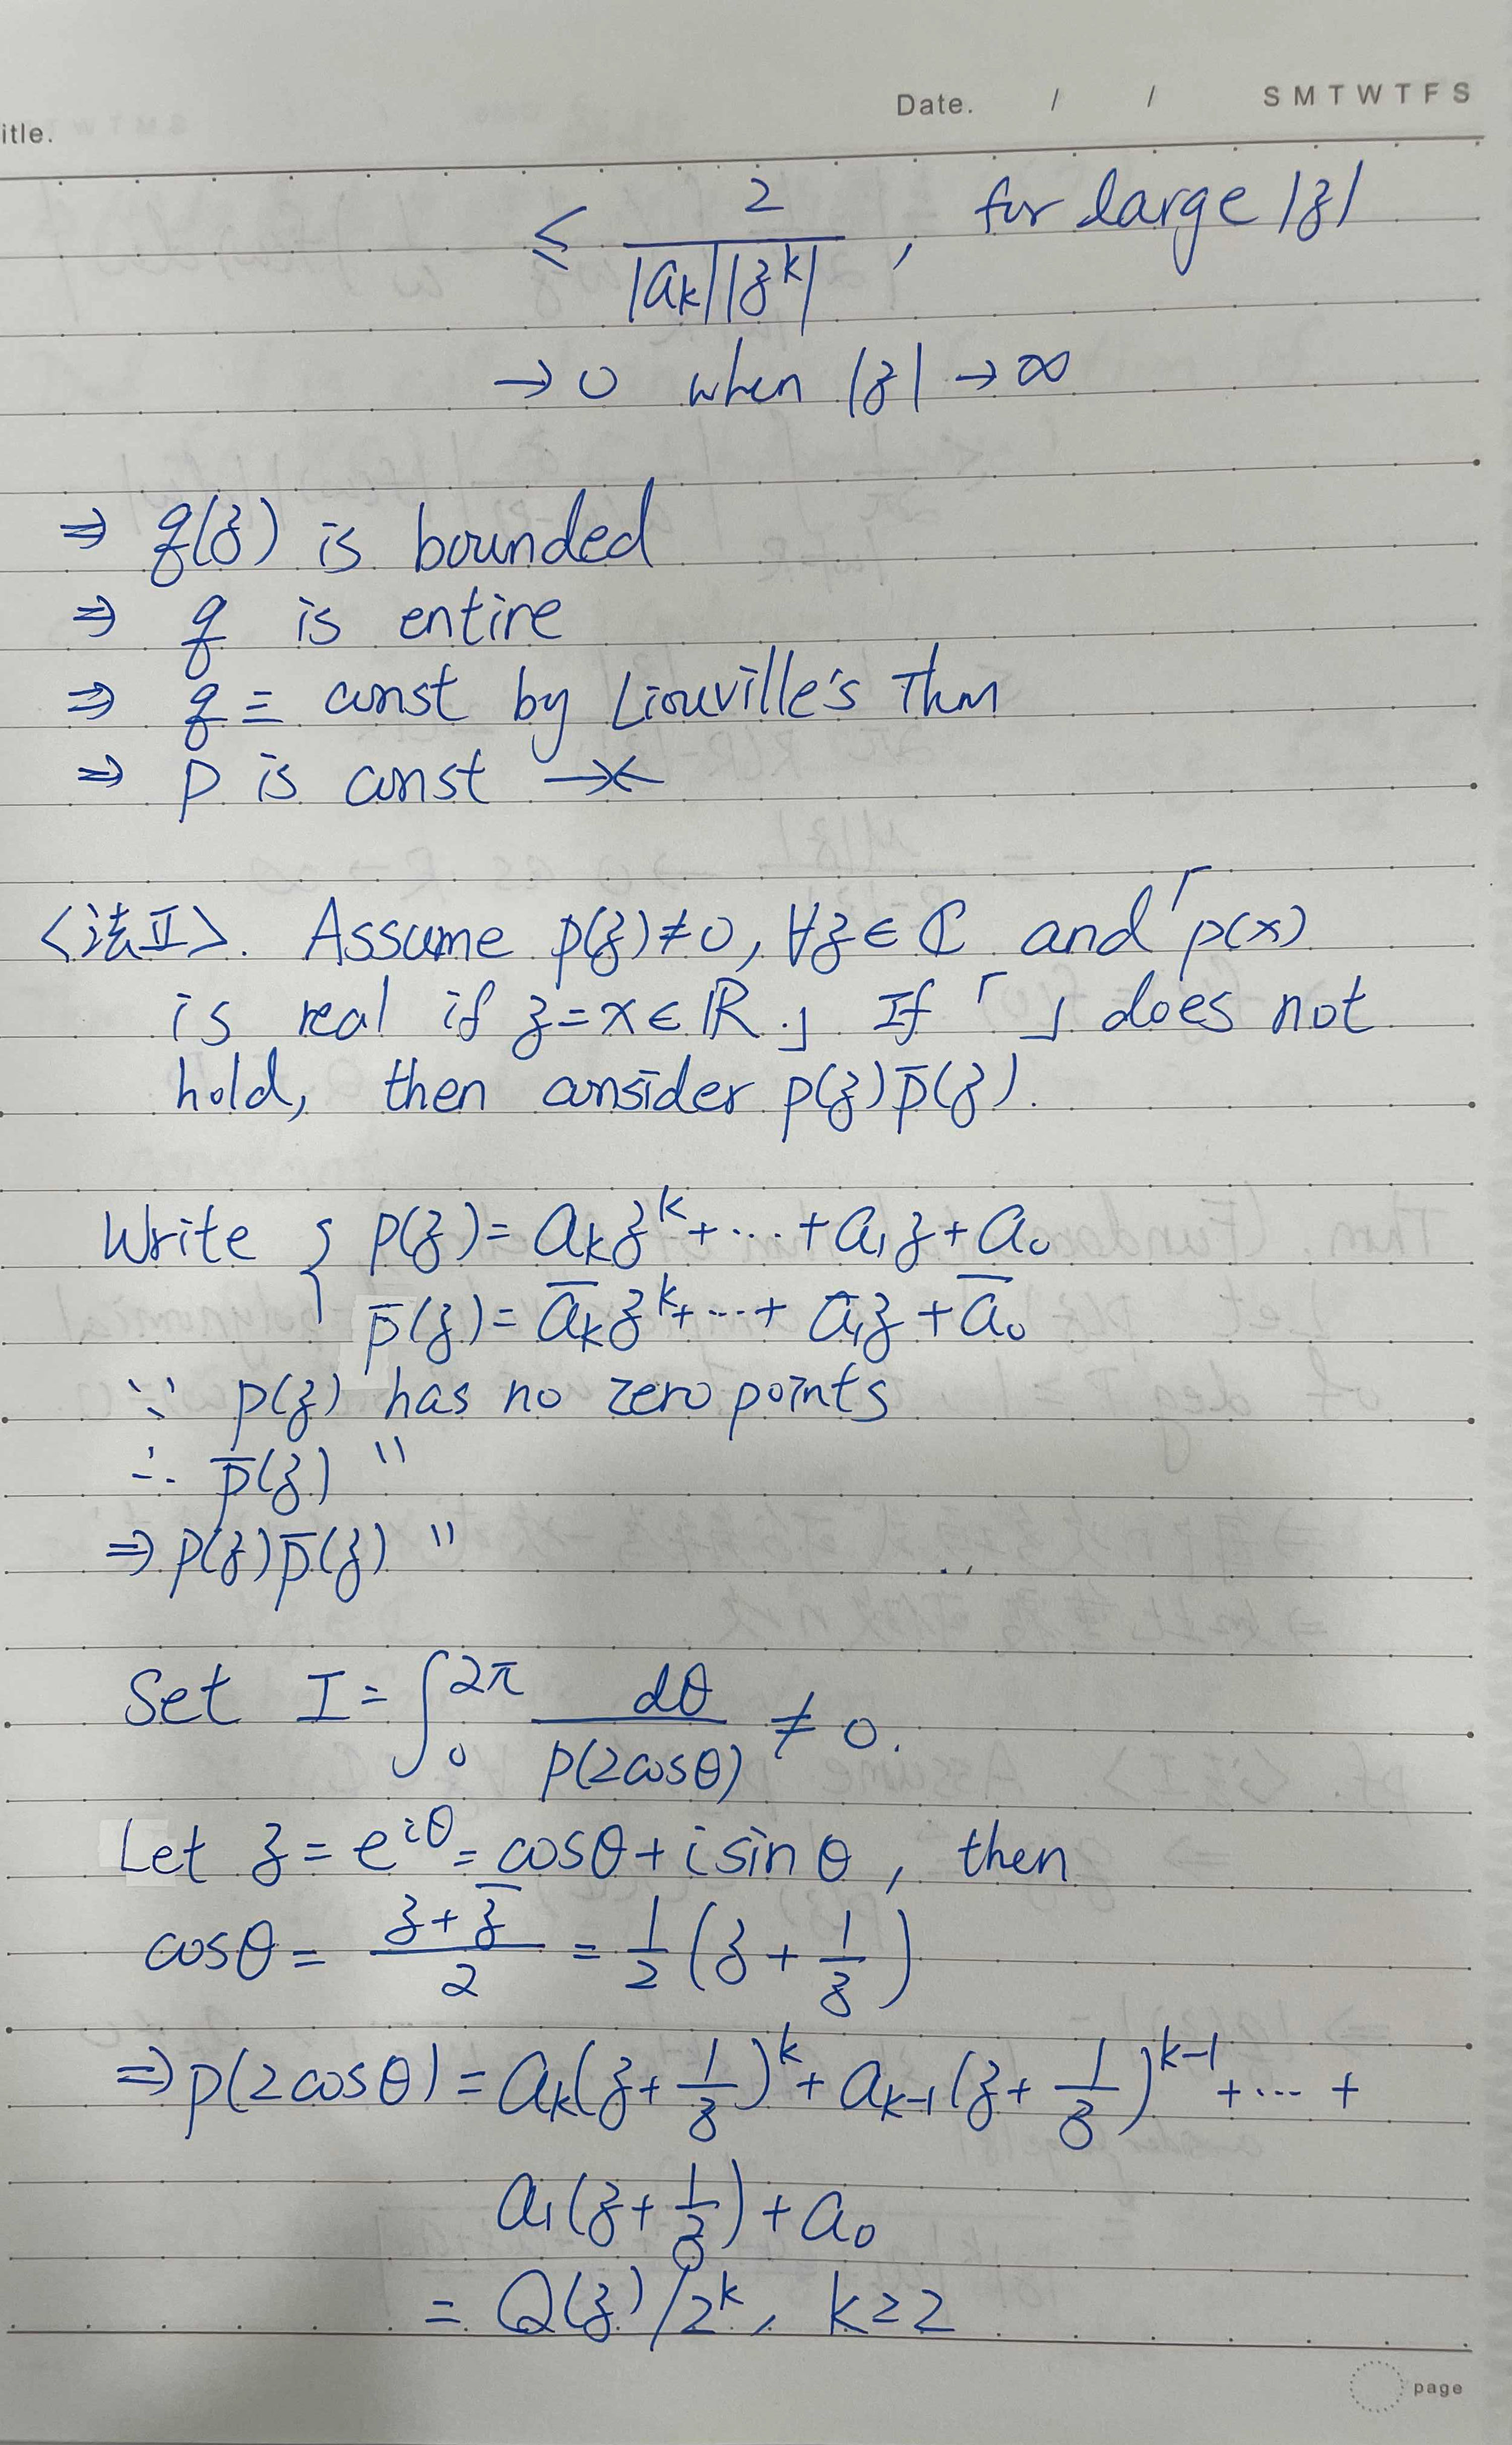 Date. / / S M T W T F S
itle.
≤ 2/(|a_k||z^k|), for large |z|
→ 0 when |z| → ∞
⇒ q(z) is bounded
⇒ q is entire
⇒ q ≡ const by Liouville's Thm
⇒ p is const →←
<法II>. Assume p(z)≠0, ∀z∈ℂ and「p(x)
is real if z=x∈ℝ.」 If「 」does not
hold, then consider p(z)p̄(z).
Write { p(z)= a_k z^k+⋯+a₁z+a₀
p̄(z)= ā_k z^k+⋯+ ā₁z+ā₀
∵ p(z) has no zero points
∴ p̄(z) "
⇒ p(z)p̄(z) "
Set I=∫₀^{2π} dθ/p(2cosθ) ≠ 0.
Let z = e^{iθ} = cosθ + i sinθ, then
cosθ = (z+z̄)/2 = 1/2 (z + 1/z)
⇒ p(2cosθ) = a_k(z+1/z)^k + a_{k-1}(z+1/z)^{k-1} + ⋯ +
a₁(z+1/z)+a₀
= Q(z)/2^k, k≥2
page